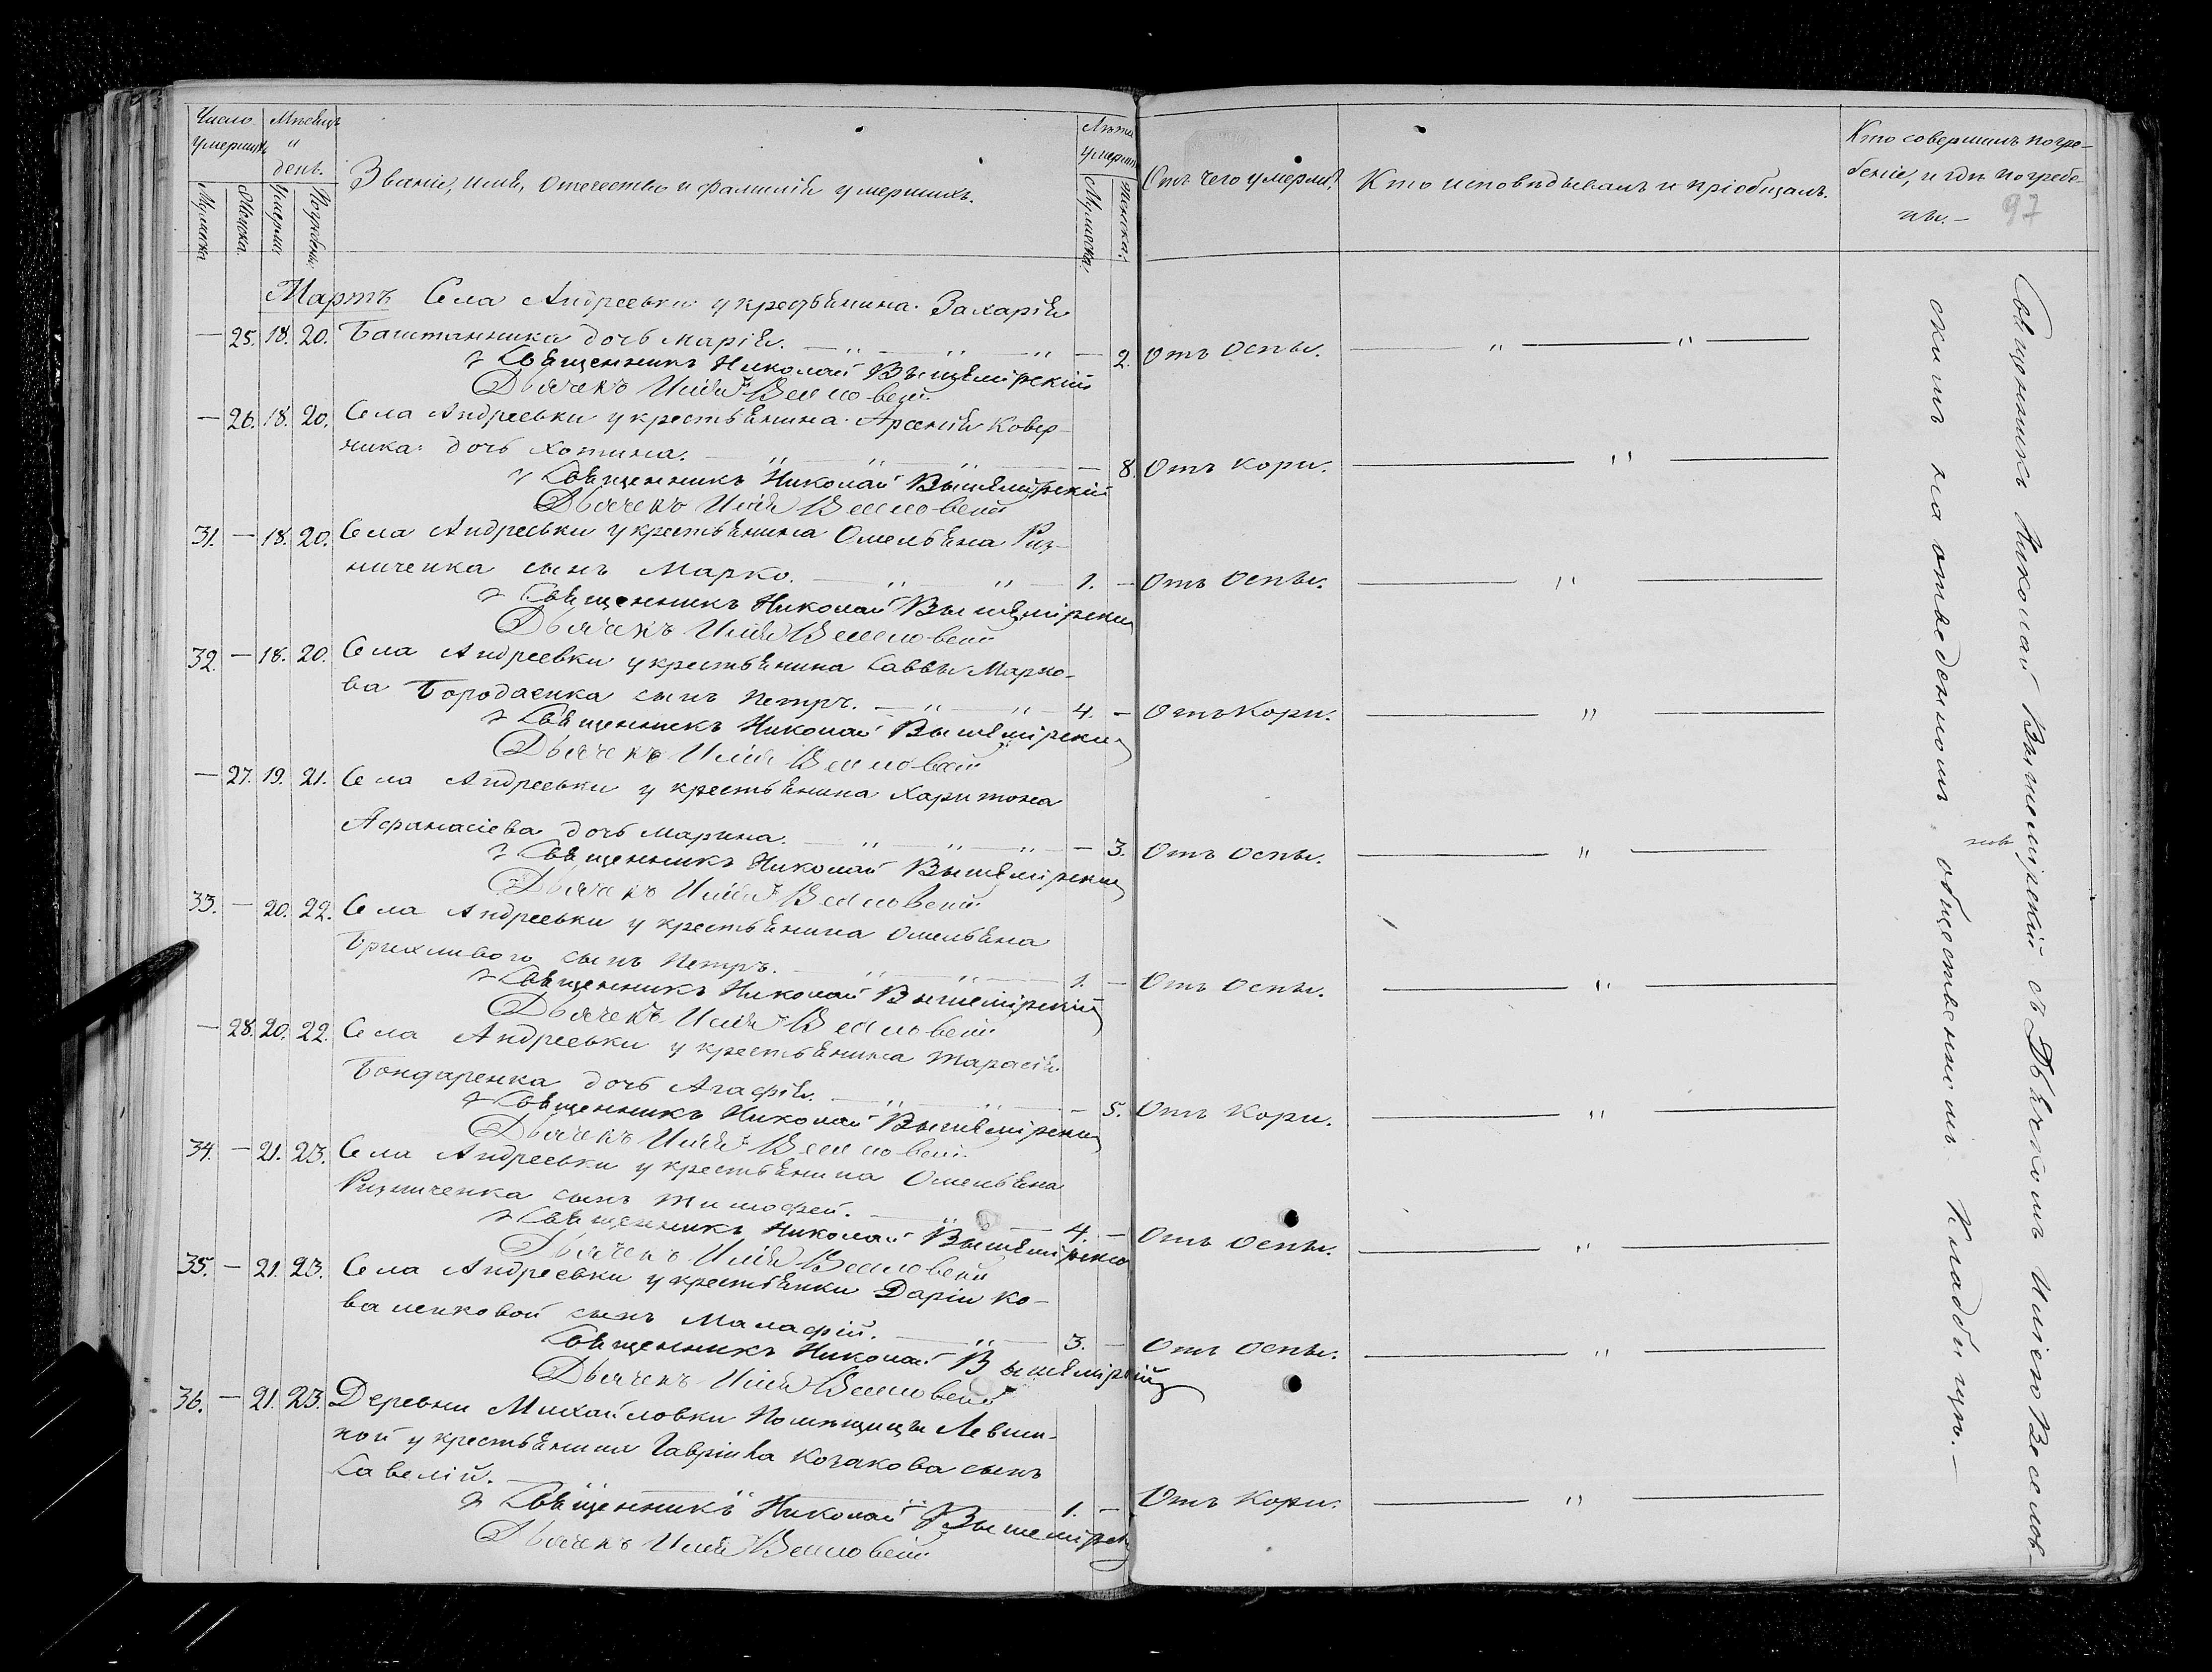 Число умершихъ
Мѣсяцъ и день.
Званіе, имя, отечество и фамилія умершихъ.
Лѣта умершихъ
Отъ чего умерли?
Кто исповѣдывалъ и пріобщалъ.
Кто совершалъ погре-
беніе, и гдѣ погребе-
ны.—
97
Мужеска. Женска. Умерли Погребены. Мужеска. Женска.
Мартъ Села Андреевки у крестьянина Захарія
— 25. 18. 20. Баштанника дочь Марія. — 2. Отъ оспы.
Священникъ Николай Вышемірскій
Дьячекъ Илія Веселовскій
— 26. 18. 20. Села Андреевки у крестьянина Арсенія Ковер-
ника дочь Хотина. — 8. Отъ кори.
Священникъ Николай Вышемірскій
Дьячекъ Илія Веселовскій
31. — 18. 20. Села Андреевки у крестьянина Омельяна Риз-
ниченка сынъ Марко. 1. — Отъ оспы.
Священникъ Николай Вышемірскій
Дьячекъ Илія Веселовскій
32. — 18. 20. Села Андреевки у крестьянина Саввы Марко-
ва Бородаенка сынъ Петръ. 4. — Отъ кори.
Священникъ Николай Вышемірскій
Дьячекъ Илія Веселовскій
— 27. 19. 21. Села Андреевки у крестьянина Харитона
Афанасіева дочь Марина. — 3. Отъ оспы.
Священникъ Николай Вышемірскій
Дьячекъ Илія Веселовскій
33. — 20. 22. Села Андреевки у крестьянина Омельяна
сынъ Петръ. 1. — Отъ оспы.
Священникъ Николай Вышемірскій
Дьячекъ Илія Веселовскій
— 28. 20. 22. Села Андреевки у крестьянина Тарасія
Бондаренка дочь Агафія. — 5. Отъ кори.
Священникъ Николай Вышемірскій
Дьячекъ Илія Веселовскій
34. — 21. 23. Села Андреевки у крестьянина Омельяна
Ризниченка сынъ Тимофей. 4. — Отъ оспы.
Священникъ Николай Вышемірскій
Дьячекъ Илія Веселовскій
35. — 21. 23. Села Андреевки у крестьянки Даріи Ко-
валенковой сынъ Малафій. 3. — Отъ оспы.
Священникъ Николай Вышемірскій
Дьячекъ Илія Веселовскій
36. — 21. 23. Деревни Михайловки Помѣщицы Левши-
ной у крестьянина Гавріила Козакова сынъ
Савелій. 1. — Отъ кори.
Священникъ Николай Вышемірскій
Дьячекъ Илія Веселовскій
Священникъ Николай Вышемірскій съ Дьячкомъ Иліею Веселов-
скимъ на отведенномъ общественномъ кладбищѣ.—